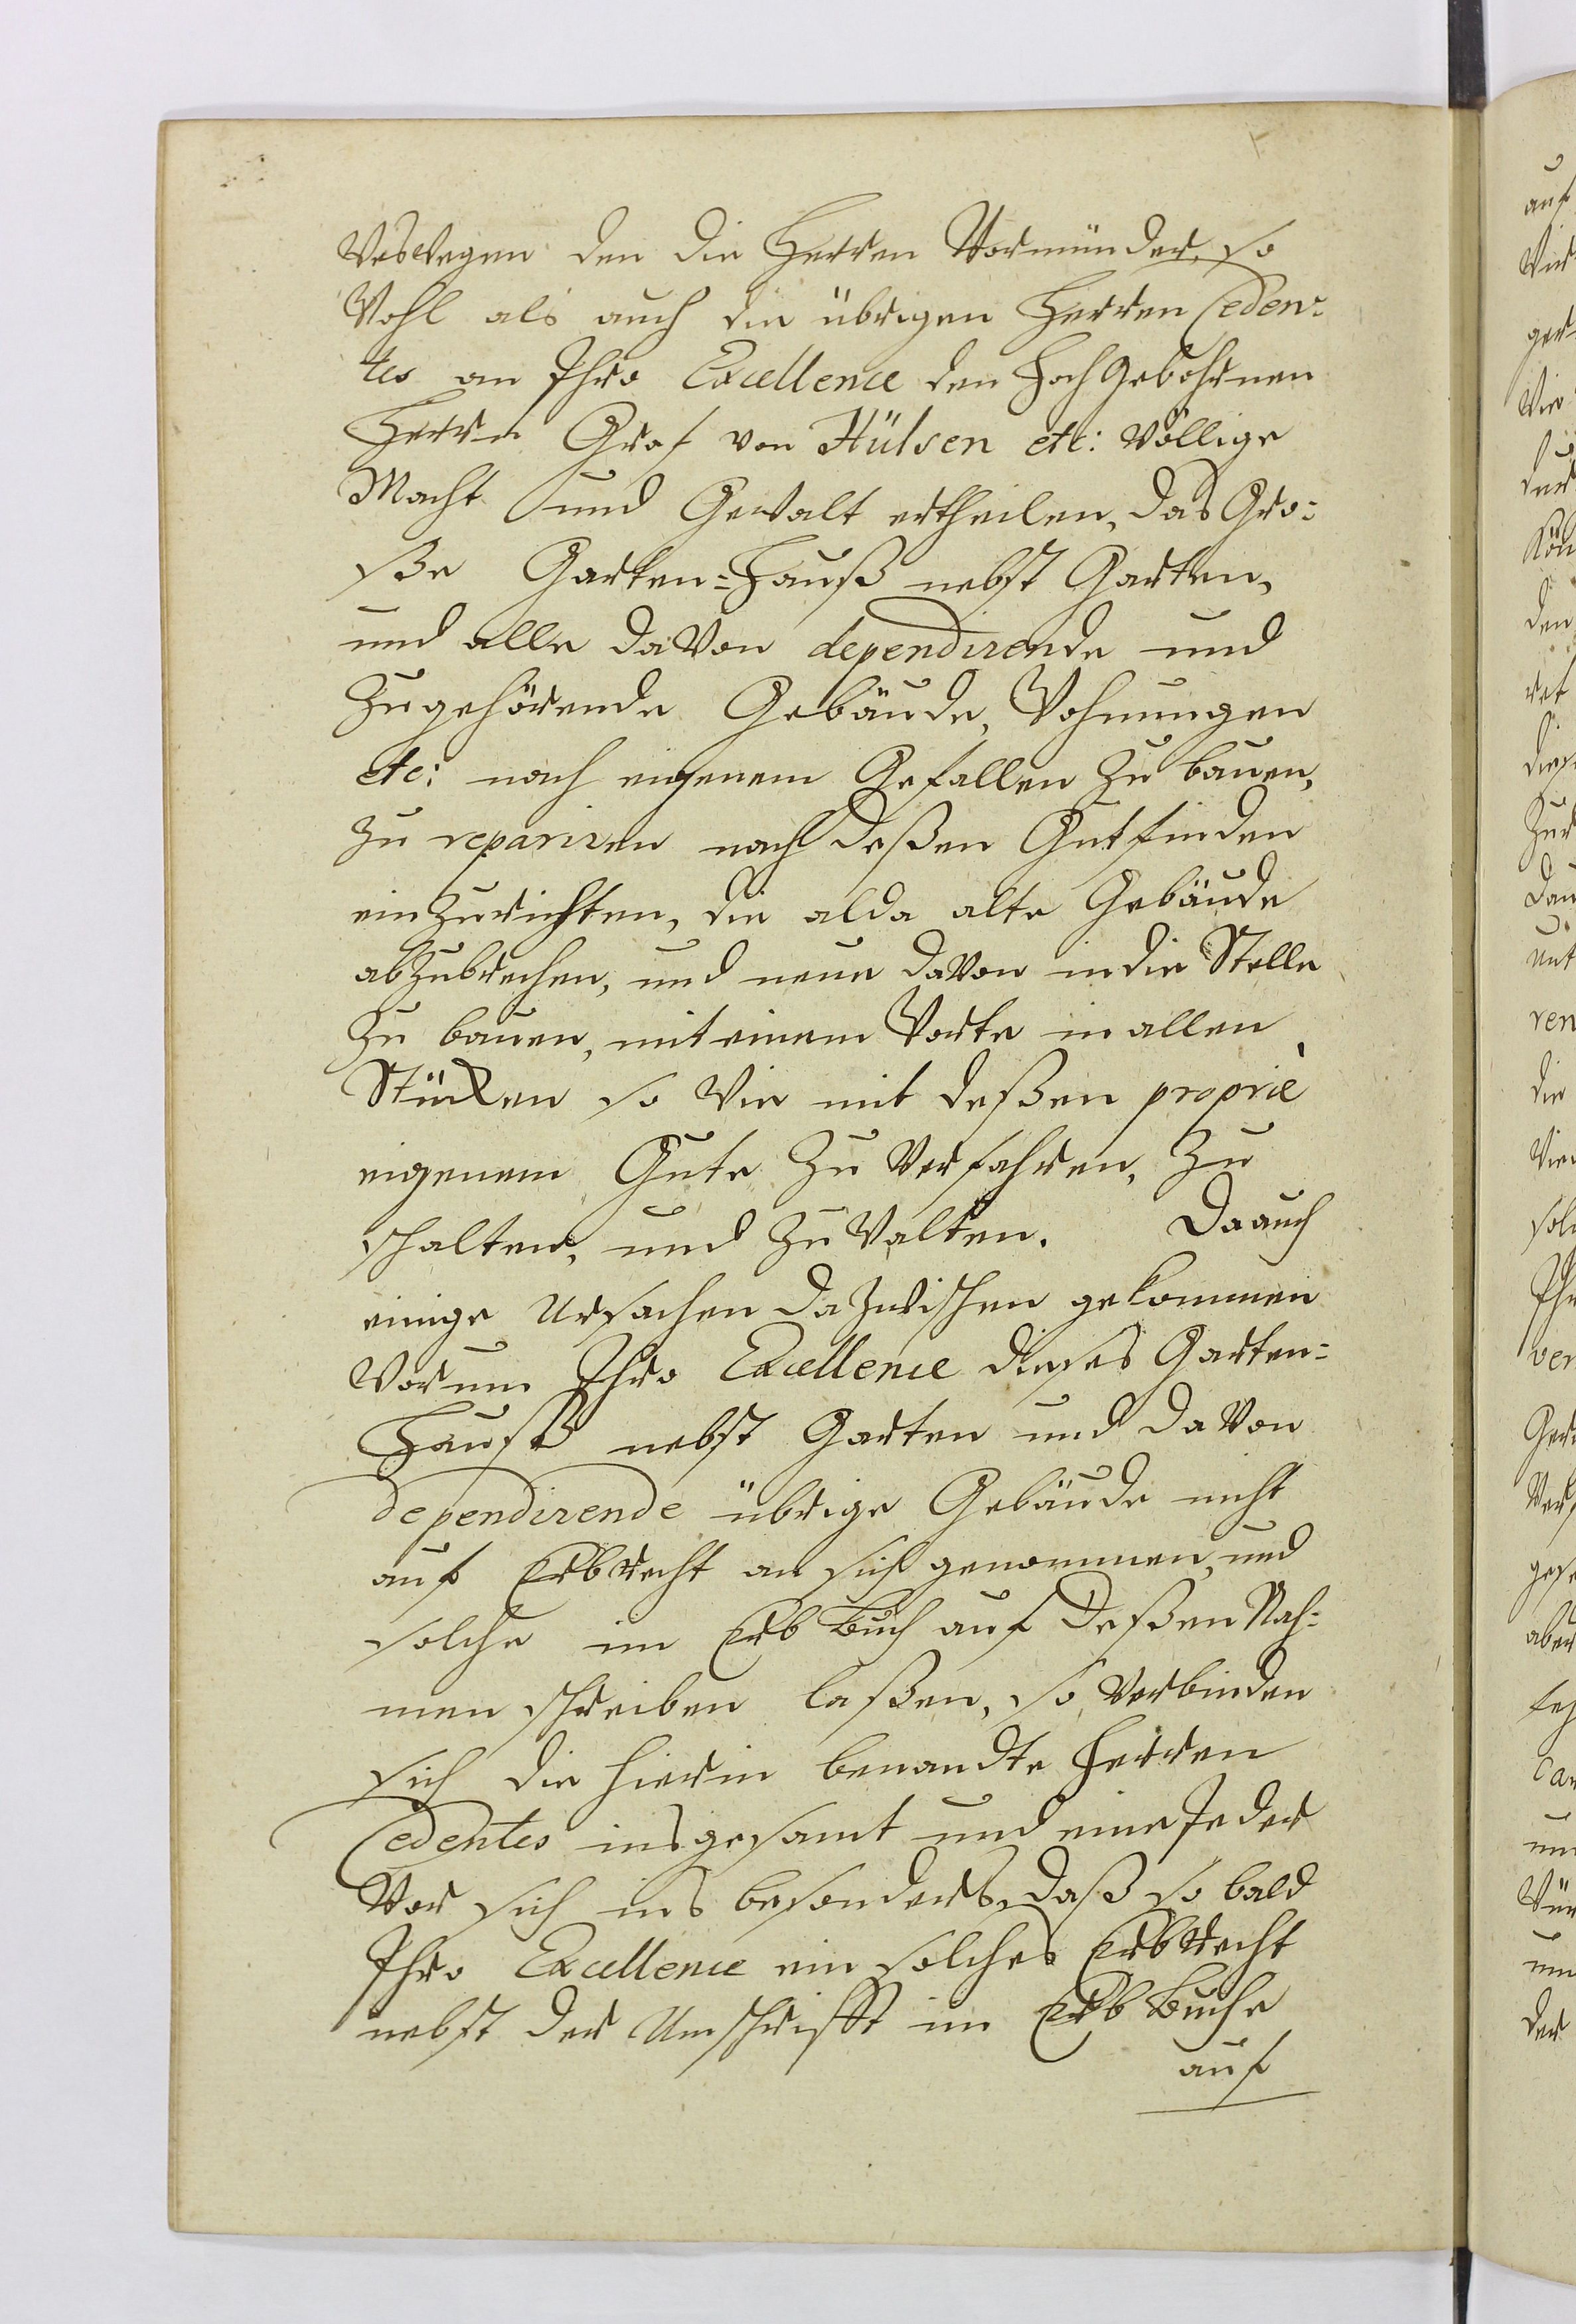 Weswegen den die Herren Vormünder, so
Wohl als auch die übrigen Herren Ceden=
tes an Ihro Excellence den Hoch Gebohrnen
Herrn Graf von Hülsen etc: Völlige
Macht und Gewalt ertheilen, das Gro=
ße Garten=Hauß nebst Garten,
und alle daVon dependirende und
Zugehörende Gebäude, Wohnungen
etc: nach eigenem Gefallen Zu bauen,
Zu repariren nach deßen Gutfinden
einZurichten, die alda alte Gebäude
abZubrechen, und neue daVon in die Stelle
Zu bauen, mit einem Worte in allen
Stücken so Wie mit deßen proprie
eigenem Gute Zu Verfahren, Zu
schalten, und Zu Walten. Da auch
einige Ursachen daZwischen gekommen
Warum Ihro Excellence dieses Garten=
Hauß nebst Garten und daVon
dependirende übrige Gebäude nicht
auf ErbRecht an sich genommen, und
solche im Erb Buch auf deßen Nah=
men schreiben laßen, so Verbinden
sich die hierin benandte Herren
Cedentes insgesamt und eine Jeder
Vor sich ins besonders, daß so bald
Ihro Excellence ein solches ErbRecht
nebst der Umschrifft im Erb Buche
auf